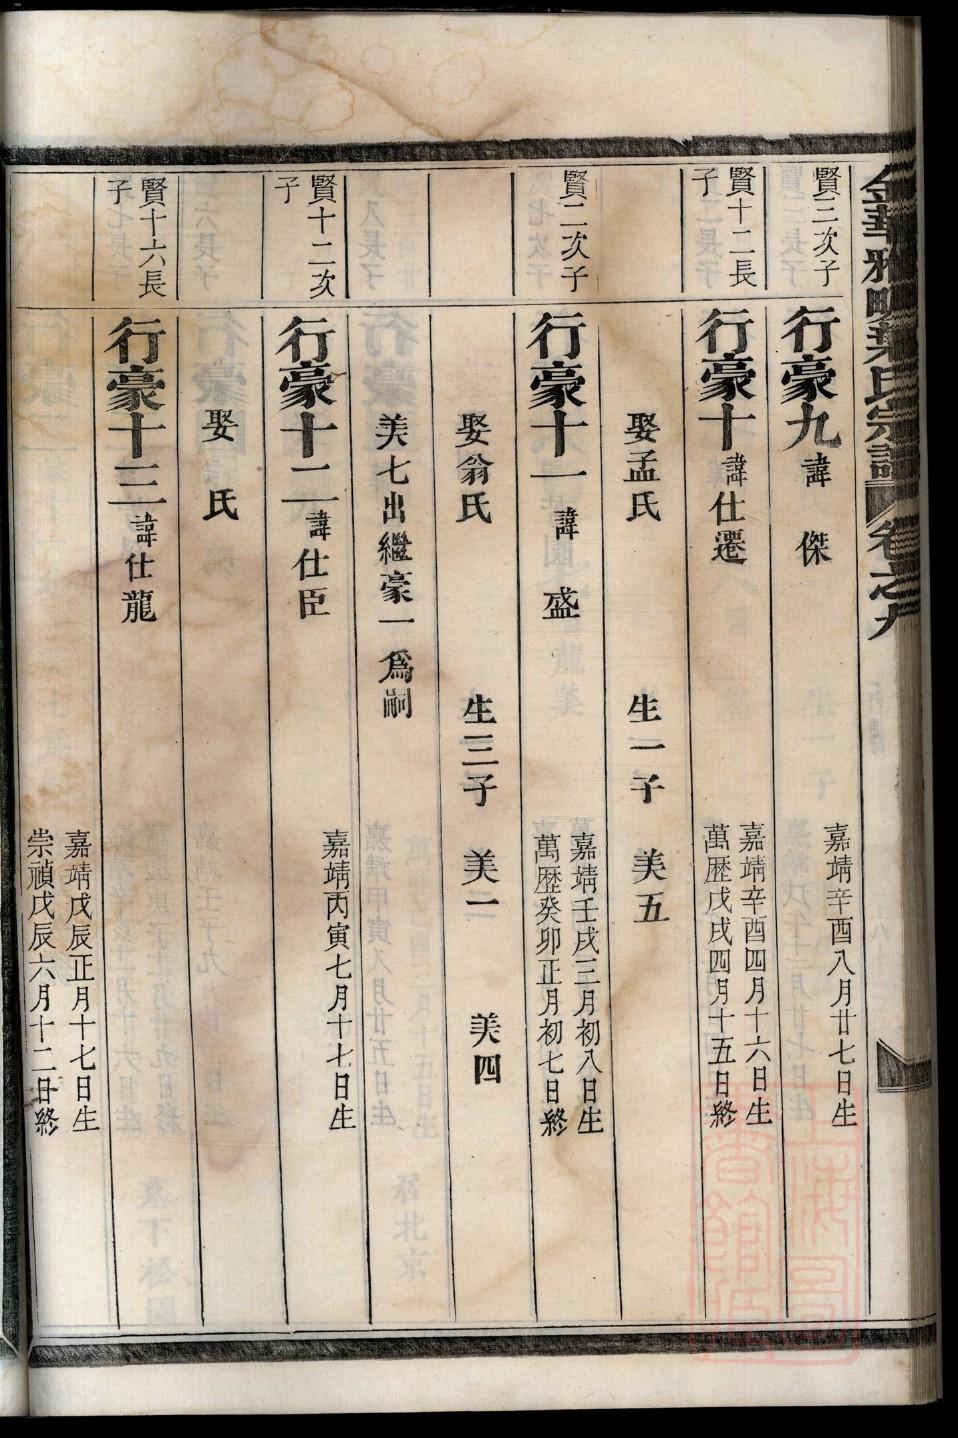 金華雅畈葉氏宗譜 卷之九
賢三次子
行豪九 諱 傑
嘉靖辛酉八月廿七日生
賢十二長子
行豪十 諱仕遷
嘉靖辛酉四月十六日生
萬歷戊戌四月十五日終
娶孟氏 生一子 美五
賢二次子
行豪十一 諱 盛
嘉靖壬戌三月初八日生
萬歷癸卯正月初七日終
娶翁氏 生三子 美二 美四
美七出繼豪一爲嗣
賢十二次子
行豪十二 諱仕臣
嘉靖丙寅七月十七日生
娶 氏
賢十六長子
行豪十三 諱仕龍
嘉靖戊辰正月十七日生
崇禎戊辰六月十二日終